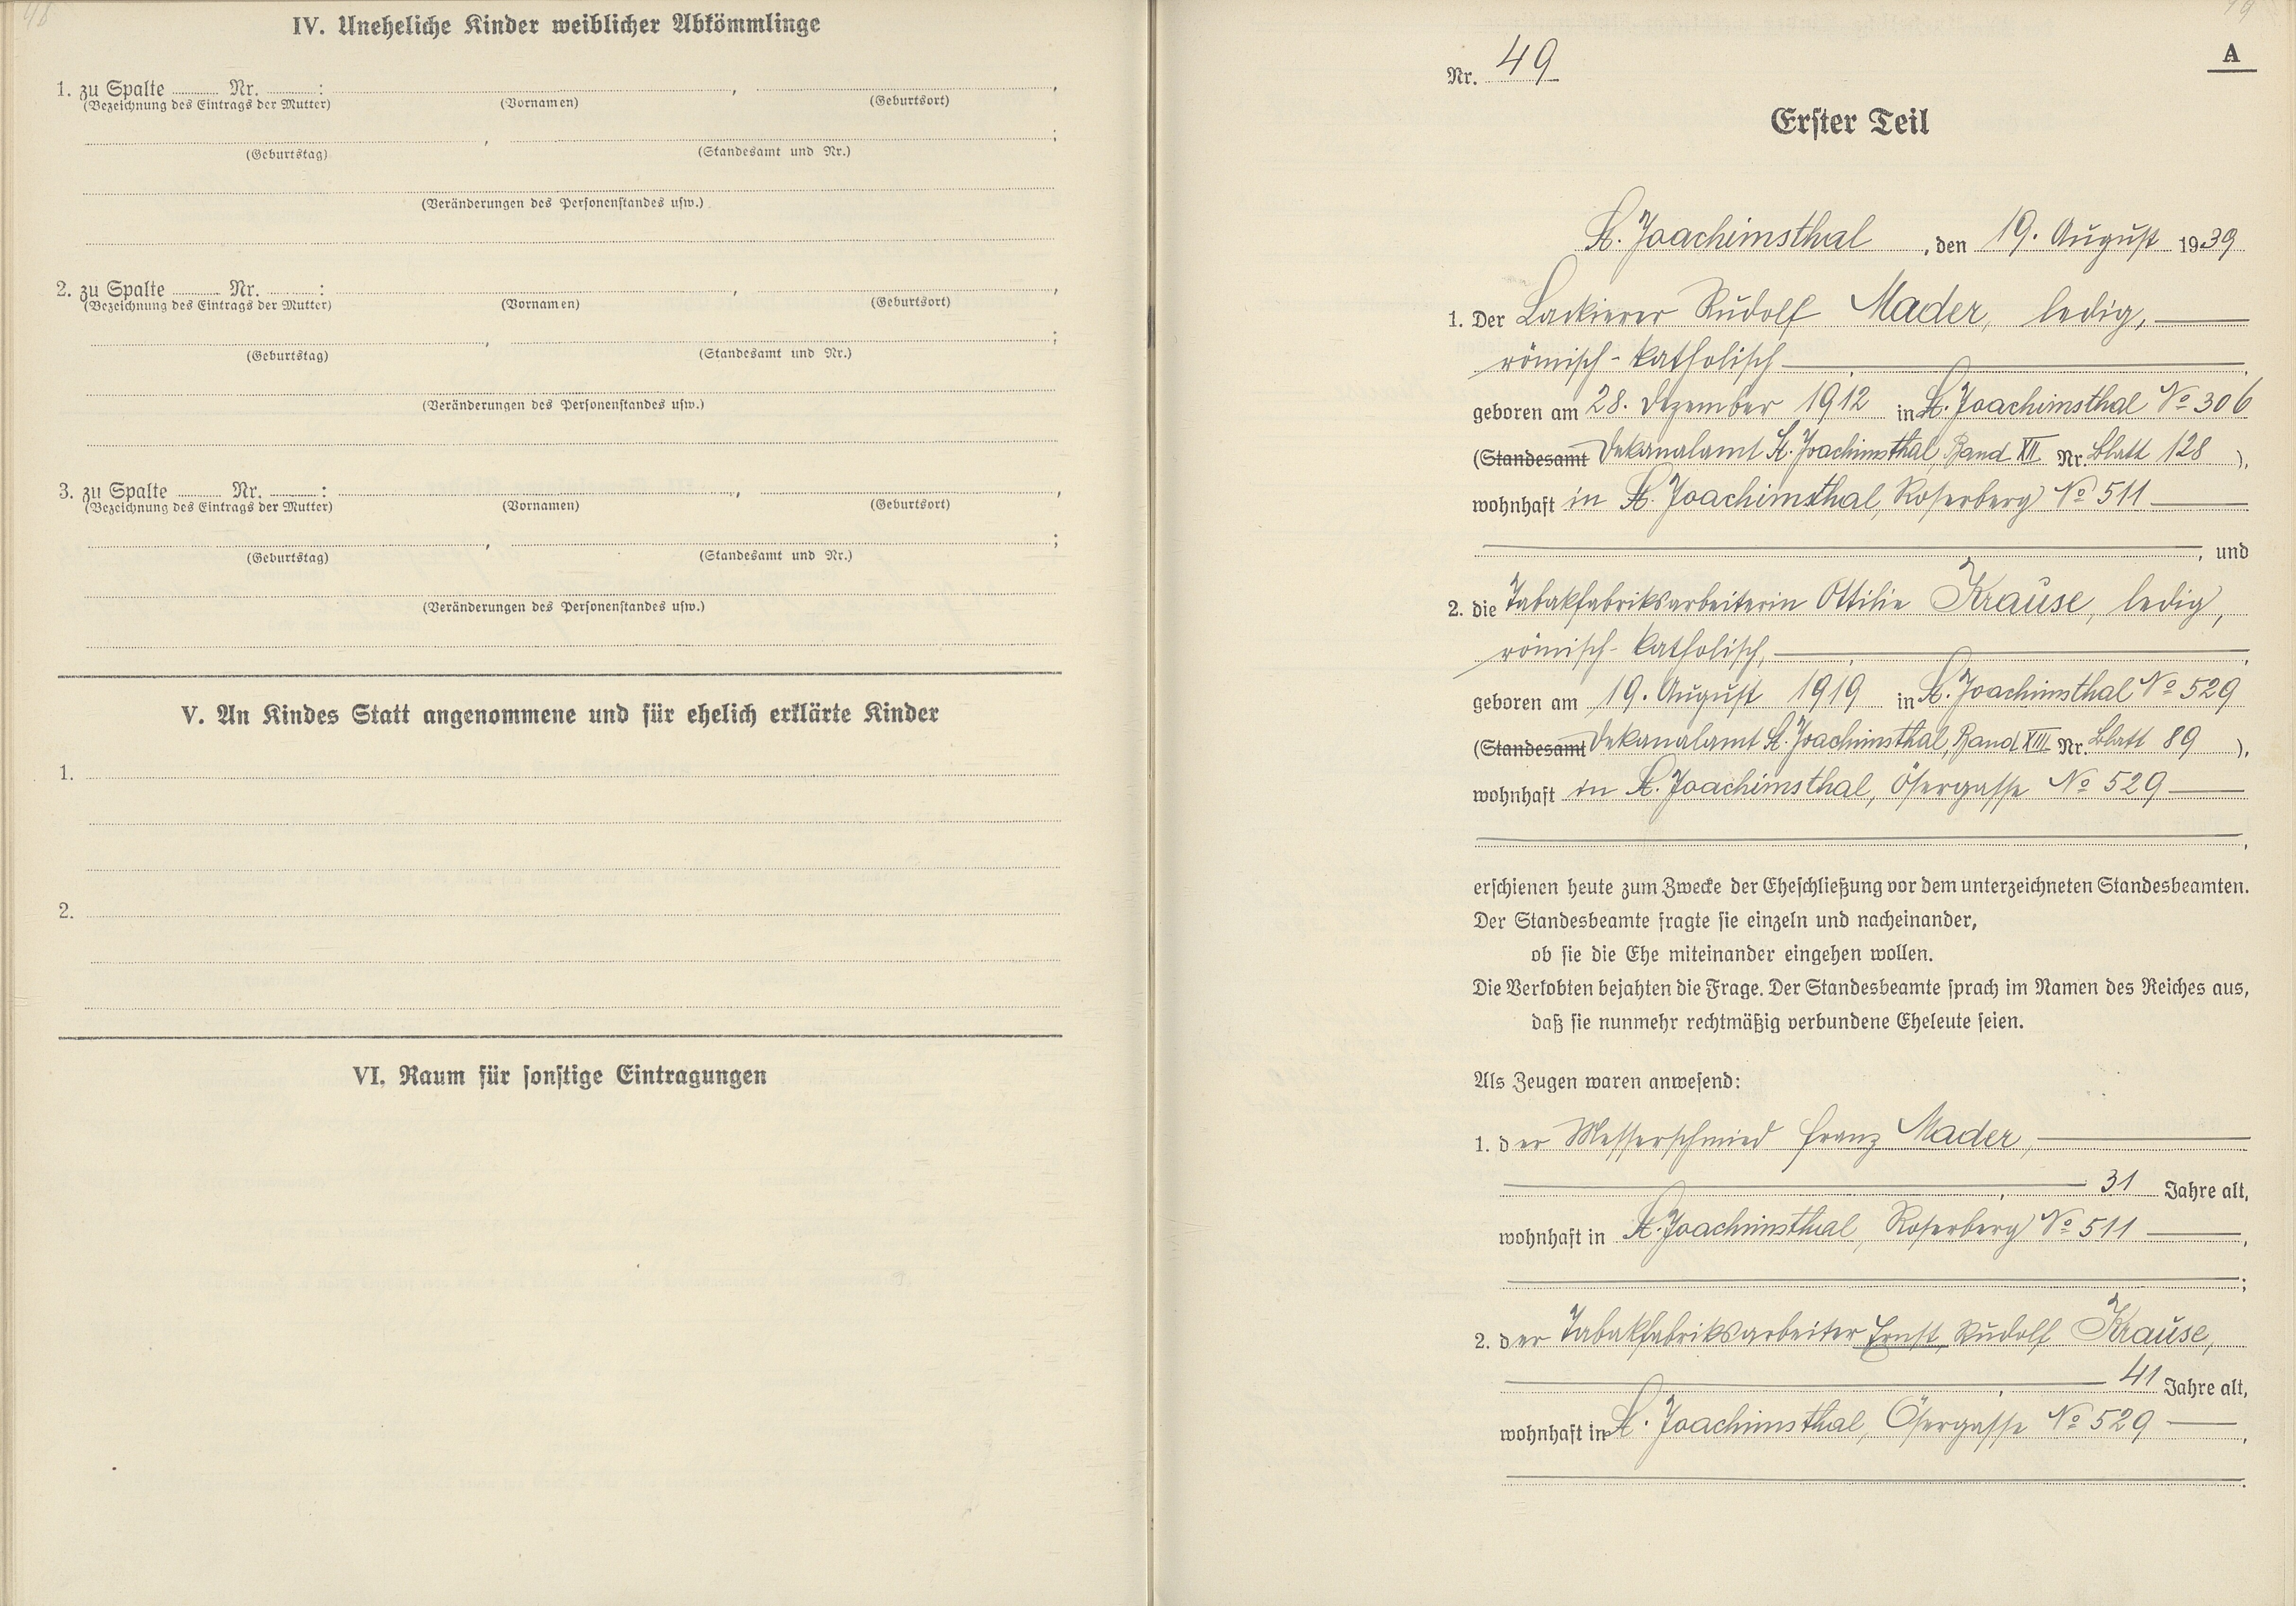 48
IV. Uneheliche Kinder weiblicher Abkömmlinge
1. zu Spalte ........ Nr. ........ : ........ , ........ ,
(Bezeichnung des Eintrags der Mutter) (Vornamen) (Geburtsort)
........ , ........ ;
(Geburtstag) (Standesamt und Nr.)
(Veränderungen des Personenstandes usw.)
2. zu Spalte ........ Nr. ........ : ........ , ........ ,
(Bezeichnung des Eintrags der Mutter) (Vornamen) (Geburtsort)
........ , ........ ;
(Geburtstag) (Standesamt und Nr.)
(Veränderungen des Personenstandes usw.)
3. zu Spalte ........ Nr. ........ : ........ , ........ ,
(Bezeichnung des Eintrags der Mutter) (Vornamen) (Geburtsort)
........ , ........ ;
(Geburtstag) (Standesamt und Nr.)
(Veränderungen des Personenstandes usw.)
V. An Kindes Statt angenommene und für ehelich erklärte Kinder
1.
2.
VI. Raum für sonstige Eintragungen
49
A
Nr. 49
Erster Teil
St. Joachimsthal, den 19. August 1939
1. Der Lackierer Rudolf Mader, ledig,
römisch-katholisch,
geboren am 28. Dezember 1912 in St. Joachimsthal No 306
(Standesamt Dekanalamt St. Joachimsthal, Band XII Nr. Blatt 128 ),
wohnhaft in St. Joachimsthal, Roserberg No 511
, und
2. die Tabakfabriksarbeiterin Ottilie Krause, ledig,
römisch-katholisch,
geboren am 19. August 1919 in St. Joachimsthal No 529
(Standesamt Dekanalamt St. Joachimsthal, Band XIII Nr. Blatt 89 ),
wohnhaft in St. Joachimsthal, Ösergasse No 529
,
erschienen heute zum Zwecke der Eheschließung vor dem unterzeichneten Standesbeamten.
Der Standesbeamte fragte sie einzeln und nacheinander,
ob sie die Ehe miteinander eingehen wollen.
Die Verlobten bejahten die Frage. Der Standesbeamte sprach im Namen des Reiches aus,
daß sie nunmehr rechtmäßig verbundene Eheleute seien.
Als Zeugen waren anwesend:
1. der Messerschmied Franz Mader,
31 Jahre alt,
wohnhaft in St. Joachimsthal, Roserberg No 511 ,
;
2. der Tabakfabriksarbeiter Ernst Rudolf Krause,
41 Jahre alt,
wohnhaft in St. Joachimsthal, Ösergasse No 529 ,
.